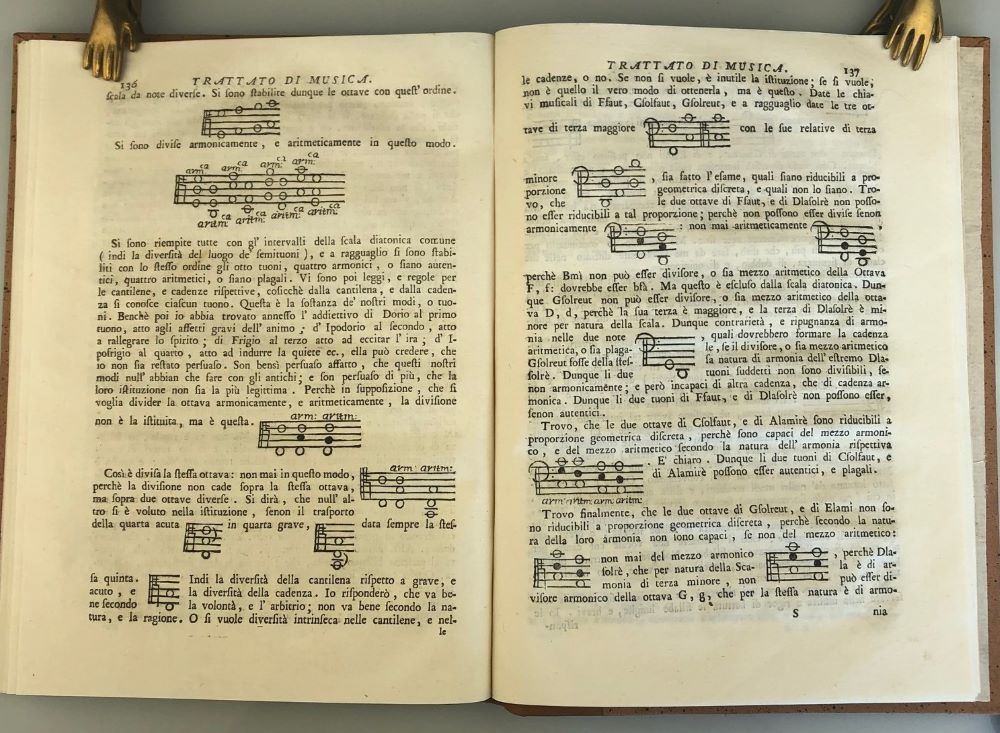 136
TRATTATO DI MUSICA.
scala da note diverse. Si sono stabilite dunque le ottave con quest' ordine.
Si sono divise armonicamente, e aritmeticamente in questo modo.
arm: ca arm: ca arm: ca arm: ca
aritm: ca aritm: ca aritm: ca aritm: ca
Si sono riempite tutte con gl' intervalli della scala diatonica comune
( indi la diversità del luogo de' semituoni ), e a ragguaglio si sono stabi-
liti con lo stesso ordine gli otto tuoni, quattro armonici, o siano auten-
tici, quattro aritmetici, o siano plagali. Vi sono poi leggi, e regole per
le cantilene, e cadenze rispettive, cosicchè dalla cantilena, e dalla caden-
za si conosce ciascun tuono. Questa è la sostanza de' nostri modi, o tuo-
ni. Benchè poi io abbia trovato annesso l' addiettivo di Dorio al primo
tuono, atto agli affetti gravi dell' animo; d' Ipodorio al secondo, atto
a rallegrare lo spirito; di Frigio al terzo atto ad eccitar l' ira; d' I-
pofrigio al quarto, atto ad indurre la quiete ec., ella può credere, che
io non sia restato persuaso. Son bensì persuaso affatto, che questi nostri
modi null' abbian che fare con gli antichi; e son persuaso di più, che la
loro istituzione non sia la più legittima. Perchè in supposizione, che si
voglia divider la ottava armonicamente, e aritmeticamente, la divisione
non è la istituita, ma è questa.
arm: aritm:
Così è divisa la stessa ottava: non mai in questo modo,
arm: aritm:
perchè la divisione non cade sopra la stessa ottava,
ma sopra due ottave diverse. Si dirà, che null' al-
tro si è voluto nella istituzione, senon il trasporto
della quarta acuta in quarta grave, data sempre la stes-
sa quinta. Indi la diversità della cantilena rispetto a grave, e
acuto, e la diversità della cadenza. Io risponderò, che va be-
ne secondo la volontà, e l' arbitrio; non va bene secondo la na-
tura, e la ragione. O si vuole diversità intrinseca nelle cantilene, e nel-
le
TRATTATO DI MUSICA.
137
le cadenze, o no. Se non si vuole, è inutile la istituzione; se si vuole,
non è quello il vero modo di ottenerla, ma è questo. Date le chia-
vi musicali di Ffaut, Csolfaut, Gsolreut, e a ragguaglio date le tre ot-
tave di terza maggiore con le sue relative di terza
minore , sia fatto l' esame, quali siano riducibili a pro-
porzione geometrica discreta, e quali non lo siano. Tro-
vo, che le due ottave di Ffaut, e di Dlasolrè non posso-
no esser riducibili a tal proporzione; perchè non possono esser divise senon
armonicamente : non mai aritmeticamente ,
perchè Bmì non può esser divisore, o sia mezzo aritmetico della Ottava
F, f: dovrebbe esser bfà. Ma questo è escluso dalla scala diatonica. Dun-
que Gsolreut non può esser divisore, o sia mezzo aritmetico della otta-
va D, d, perchè la sua terza è maggiore, e la terza di Dlasolrè è mi-
nore per natura della scala. Dunque contrarietà, e ripugnanza di armo-
nia nelle due note , quali dovrebbero formare la cadenza
aritmetica, o sia plaga- le, se il divisore, o sia mezzo aritmetico
Gsolreut fosse della stes- sa natura di armonia dell' estremo Dla-
solrè. Dunque li due tuoni suddetti non sono divisibili, se-
non armonicamente; e però incapaci di altra cadenza, che di cadenza ar-
monica. Dunque li due tuoni di Ffaut, e di Dlasolrè non possono esser,
senon autentici.
Trovo, che le due ottave di Csolfaut, e di Alamirè sono riducibili a
proporzione geometrica discreta, perchè sono capaci del mezzo armoni-
co, e del mezzo aritmetico secondo la natura dell' armonia rispettiva
. E' chiaro. Dunque li due tuoni di Csolfaut, e
di Alamirè possono esser autentici, e plagali.
arm: aritm: arm: aritm:
Trovo finalmente, che le due ottave di Gsolreut, e di Elamì non so-
no riducibili a proporzione geometrica discreta, perchè secondo la natu-
ra della loro armonia non sono capaci, se non del mezzo aritmetico:
non mai del mezzo armonico , perchè Dla-
solrè, che per natura della Sca- la è di ar-
monia di terza minore, non può esser di-
visore armonico della ottava G, g, che per la stessa natura è di armo-
S
nia